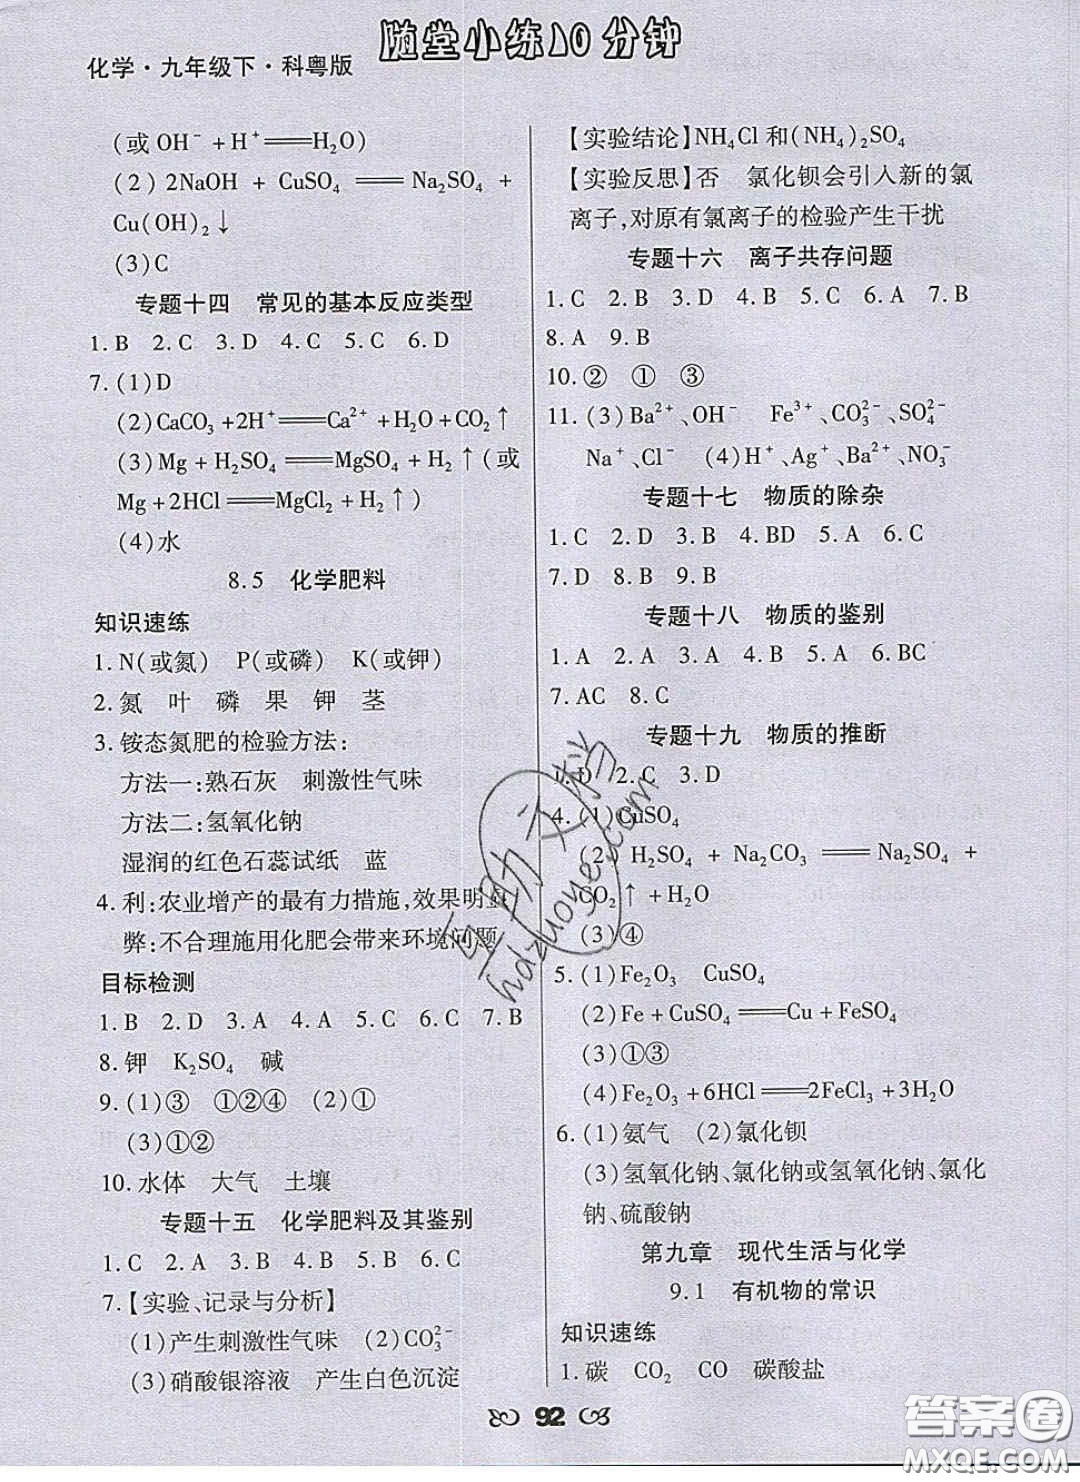 随堂小练10分钟
化学·九年级下·科粤版
(或OH⁻+H⁺══H₂O)
(2) 2NaOH + CuSO₄ ══ Na₂SO₄ +
Cu(OH)₂↓
(3)C
专题十四 常见的基本反应类型
1. B 2. C 3. D 4. C 5. C 6. D
7. (1)D
(2)CaCO₃+2H⁺══Ca²⁺+H₂O+CO₂↑
(3)Mg+H₂SO₄══MgSO₄+H₂↑(或
Mg+2HCl══MgCl₂+H₂↑)
(4)水
8.5 化学肥料
知识速练
1. N(或氮) P(或磷) K(或钾)
2. 氮 叶 磷 果 钾 茎
3. 铵态氮肥的检验方法:
方法一:熟石灰 刺激性气味
方法二:氢氧化钠
湿润的红色石蕊试纸 蓝
4. 利:农业增产的最有力措施,效果明显
弊:不合理施用化肥会带来环境问题
目标检测
1. B 2. D 3. A 4. A 5. C 6. C 7. B
8. 钾 K₂SO₄ 碱
9. (1)③ ①②④ (2)①
(3)①②
10. 水体 大气 土壤
专题十五 化学肥料及其鉴别
1. C 2. A 3. B 4. B 5. B 6. A
7.【实验、记录与分析】
(1)产生刺激性气味 (2)CO₃²⁻
(3)硝酸银溶液 产生白色沉淀
【实验结论】NH₄Cl和(NH₄)₂SO₄
【实验反思】否 氯化钡会引入新的氯
离子,对原有氯离子的检验产生干扰
专题十六 离子共存问题
1. C 2. B 3. D 4. B 5. C 6. A 7. B
8. A 9. B
10. ② ① ③
11. (3)Ba²⁺、OH⁻ Fe³⁺、CO₃²⁻、SO₄²⁻
Na⁺、Cl⁻ (4)H⁺、Ag⁺、Ba²⁺、NO₃⁻
专题十七 物质的除杂
1. C 2. D 3. B 4. BD 5. A 6. C
7. D 8. B 9. B
专题十八 物质的鉴别
1. A 2. A 3. D 4. D 5. A 6. BC
7. AC 8. C
专题十九 物质的推断
1. D 2. C 3. D
4. (1)CuSO₄
(2) H₂SO₄ + Na₂CO₃ ══ Na₂SO₄ +
CO₂↑+H₂O
(3)④
5. (1)Fe₂O₃ CuSO₄
(2)Fe+CuSO₄══Cu+FeSO₄
(3)①③
(4)Fe₂O₃+6HCl══2FeCl₃+3H₂O
6. (1)氨气 (2)氯化钡
(3)氢氧化钠、氯化钠或氢氧化钠、氯化
钠、硫酸钠
第九章 现代生活与化学
9.1 有机物的常识
知识速练
1. 碳 CO₂ CO 碳酸盐
92
hdzuoye.com
答案圈
MXQE.COM